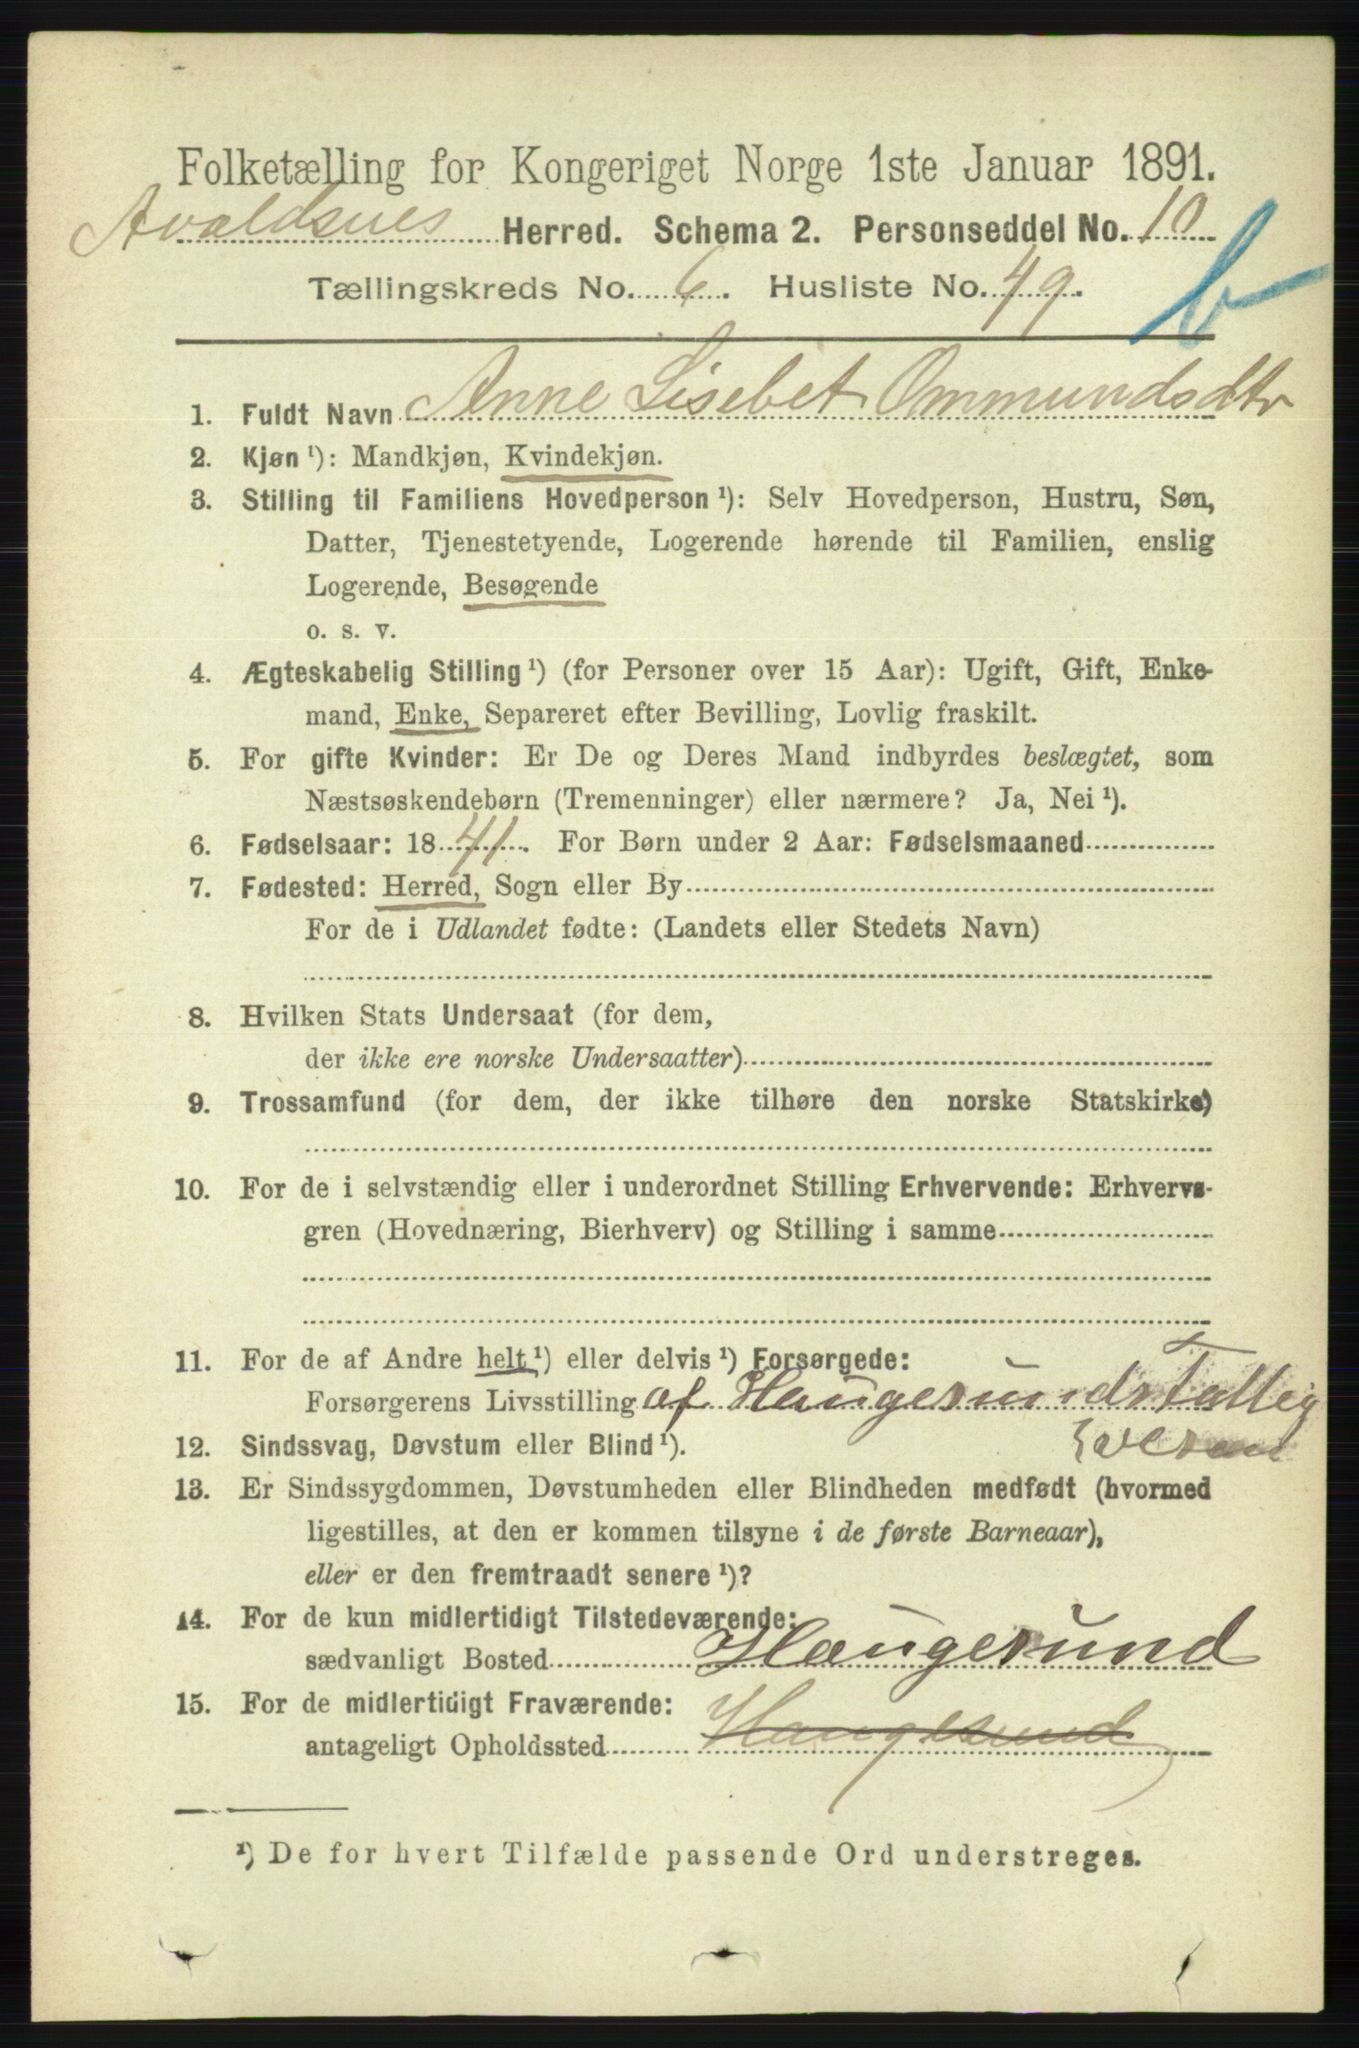 Folketælling for Kongeriget Norge 1ste Januar 1891.
Avaldsnes Herred. Schema 2. Personseddel No. 10
Tællingskreds No. 6. Husliste No. 49.
b
1. Fuldt Navn Anne Lisebet Ommundsdtr
2. Kjøn ¹): Mandkjøn, Kvindekjøn.
3. Stilling til Familiens Hovedperson ¹): Selv Hovedperson, Hustru, Søn,
Datter, Tjenestetyende, Logerende hørende til Familien, enslig
Logerende, Besøgende
o. s. v.
4. Ægteskabelig Stilling ¹) (for Personer over 15 Aar): Ugift, Gift, Enke-
mand, Enke, Separeret efter Bevilling, Lovlig fraskilt.
5. For gifte Kvinder: Er De og Deres Mand indbyrdes beslægtet, som
Næstsøskendebørn (Tremenninger) eller nærmere? Ja, Nei ¹).
6. Fødselsaar: 1841. For Børn under 2 Aar: Fødselsmaaned
7. Fødested: Herred, Sogn eller By
For de i Udlandet fødte: (Landets eller Stedets Navn)
8. Hvilken Stats Undersaat (for dem,
der ikke ere norske Undersaatter)
9. Trossamfund (for dem, der ikke tilhøre den norske Statskirke)
10. For de i selvstændig eller i underordnet Stilling Erhvervende: Erhvervs-
gren (Hovednæring, Bierhverv) og Stilling i samme
11. For de af Andre helt ¹) eller delvis ¹) Forsørgede:
Forsørgerens Livsstilling af Haugesunds Fattig
væsen
12. Sindssvag, Døvstum eller Blind ¹).
13. Er Sindssygdommen, Døvstumheden eller Blindheden medfødt (hvormed
ligestilles, at den er kommen tilsyne i de første Barneaar),
eller er den fremtraadt senere ¹)?
14. For de kun midlertidigt Tilstedeværende:
sædvanligt Bosted Haugesund
15. For de midlertidigt Fraværende:
antageligt Opholdssted Haugesund
¹) De for hvert Tilfælde passende Ord understreges.